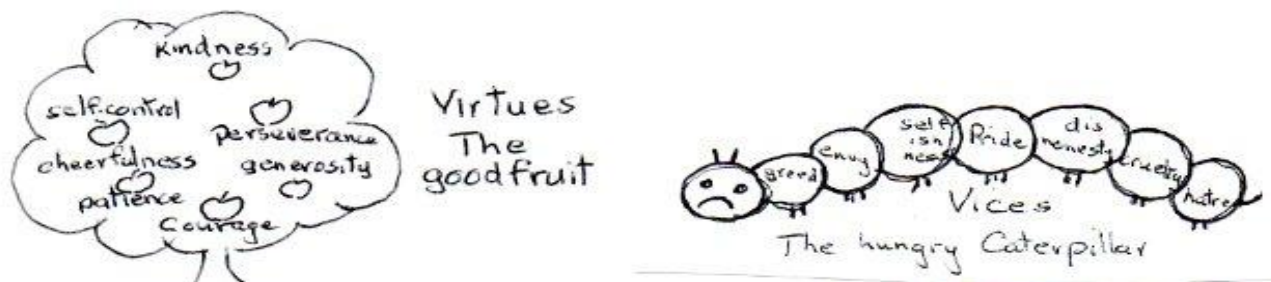 Kindness
self-control
perseverance
cheerfulness
generosity
patience
Courage
Virtues
The
good fruit
greed
envy
self
ish
ness
Pride
dis
honesty
cruelty
hatre
Vices
The hungry Caterpillar